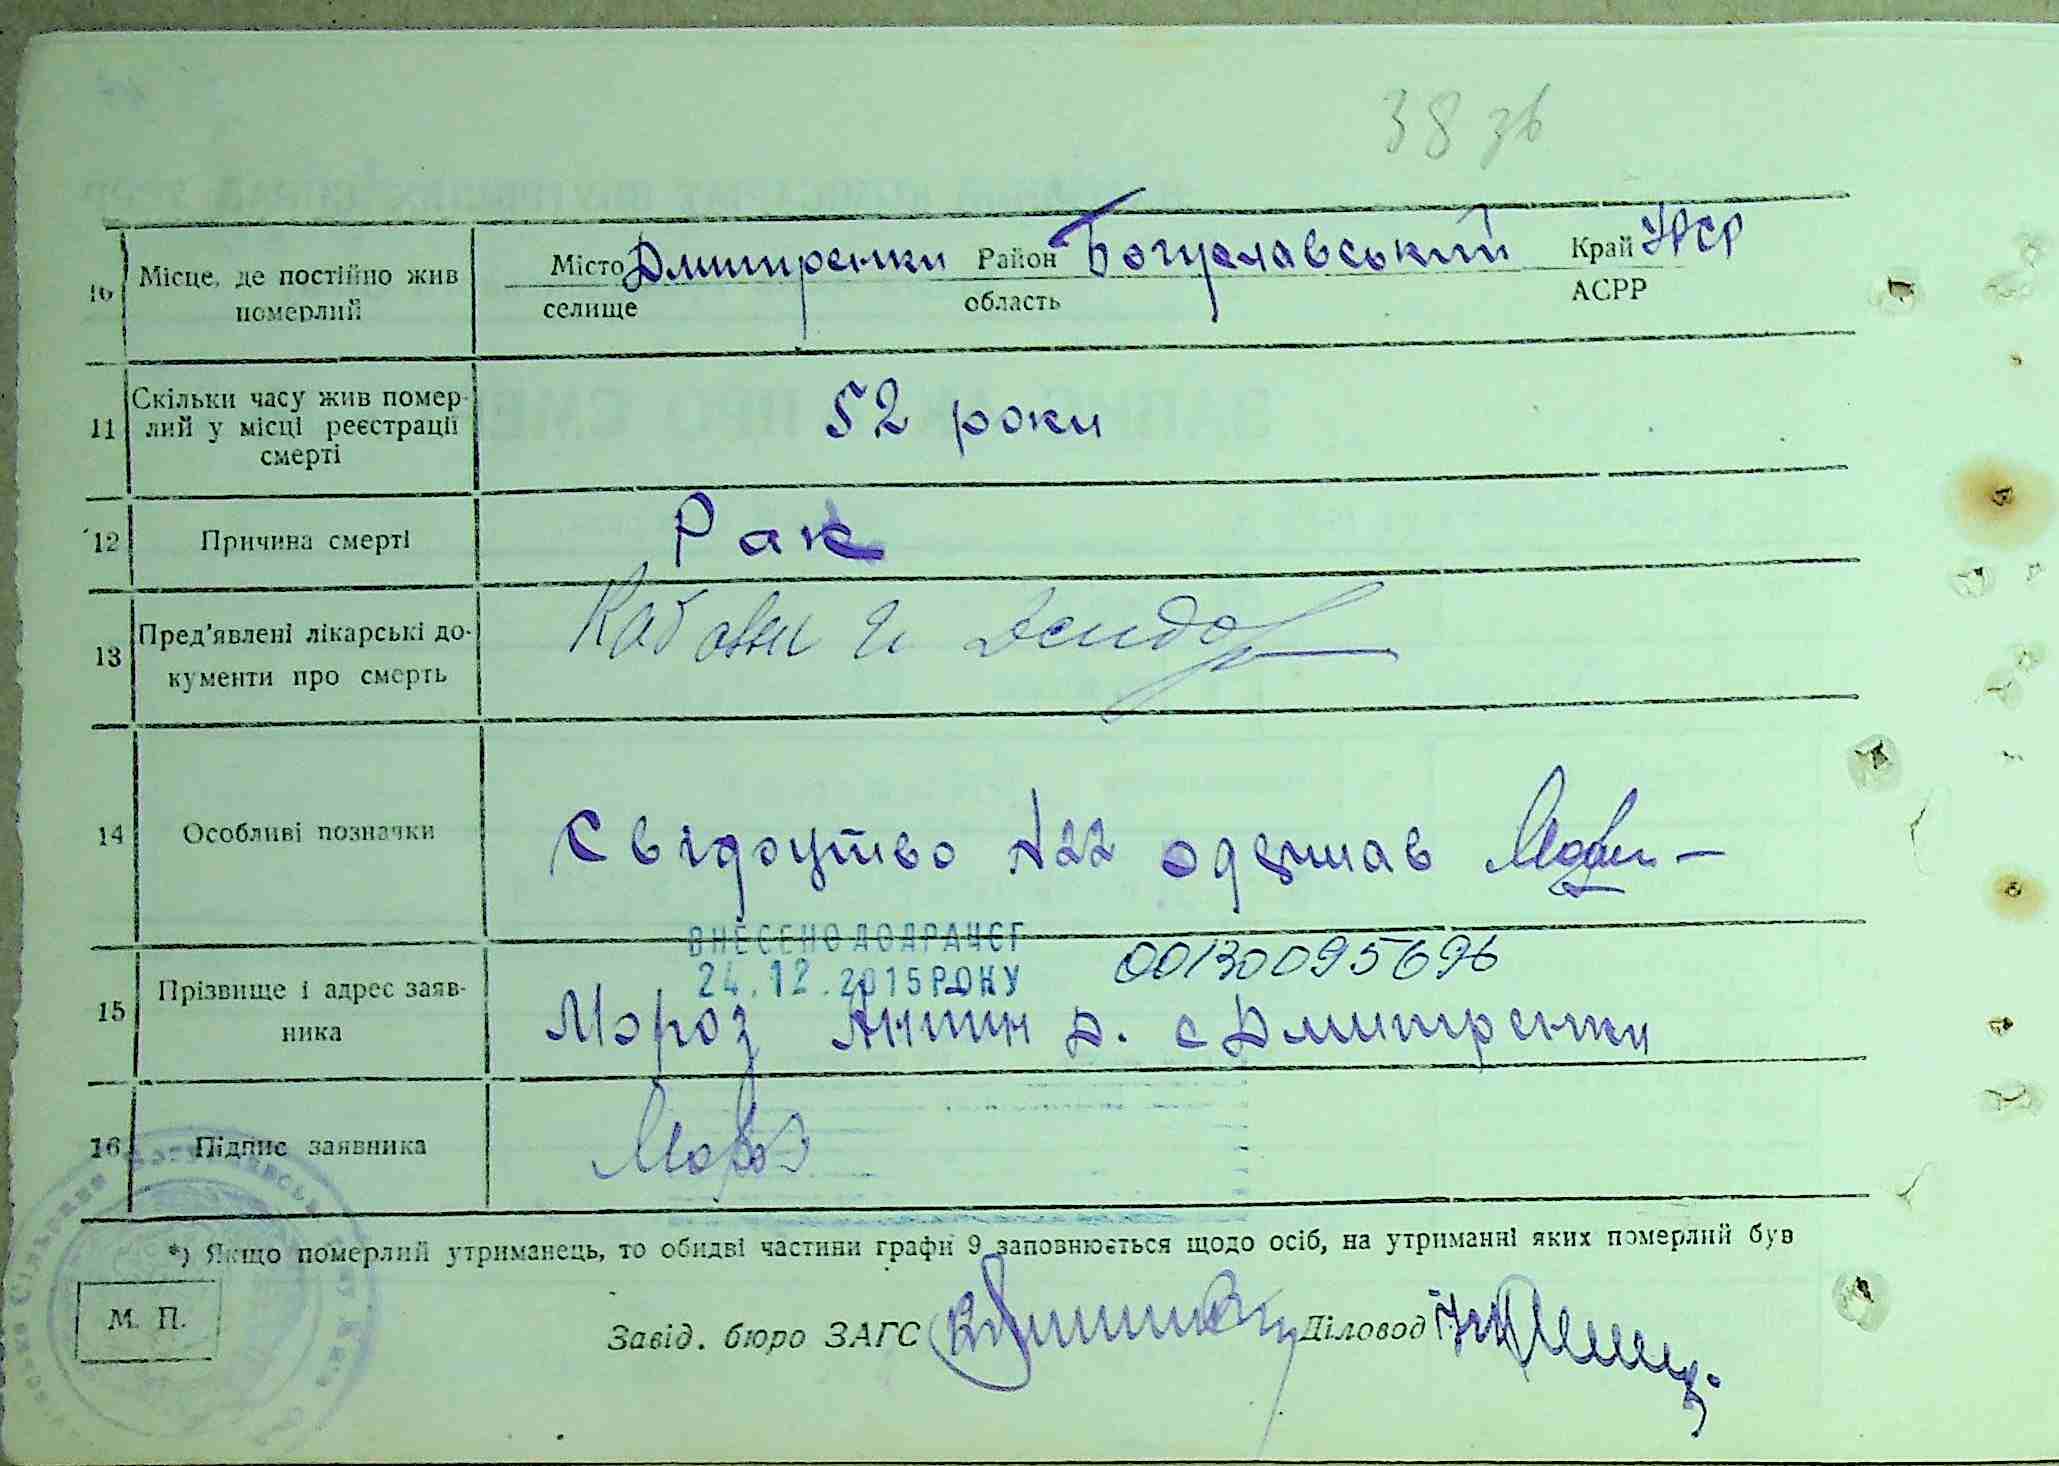 38 зв
10 Місце, де постійно жив померлий Місто селище Дмитренки Район область Богуславський Край АСРР УРСР
11 Скільки часу жив померлий у місці реєстрації смерті 52 роки
12 Причина смерті Рак
13 Пред'явлені лікарські документи про смерть
14 Особливі позначки Свідоцтво N22 одержав
ВНЕСЕНО ДО ДРАЦСГ
24.12.2015 РОКУ 00130095696
15 Прізвище і адрес заявника Мороз Антин Д. с Дмитренки
16 Підпис заявника Мороз
*) Якщо померлий утриманець, то обидві частини графи 9 заповнюється щодо осіб, на утриманні яких померлий був
М. П.
Завід. бюро ЗАГС Діловод